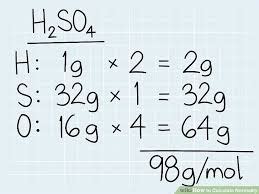 H₂SO₄
H: 1g × 2 = 2g
S: 32g × 1 = 32g
O: 16g × 4 = 64g
98g/mol
wikiHow to Calculate Normality